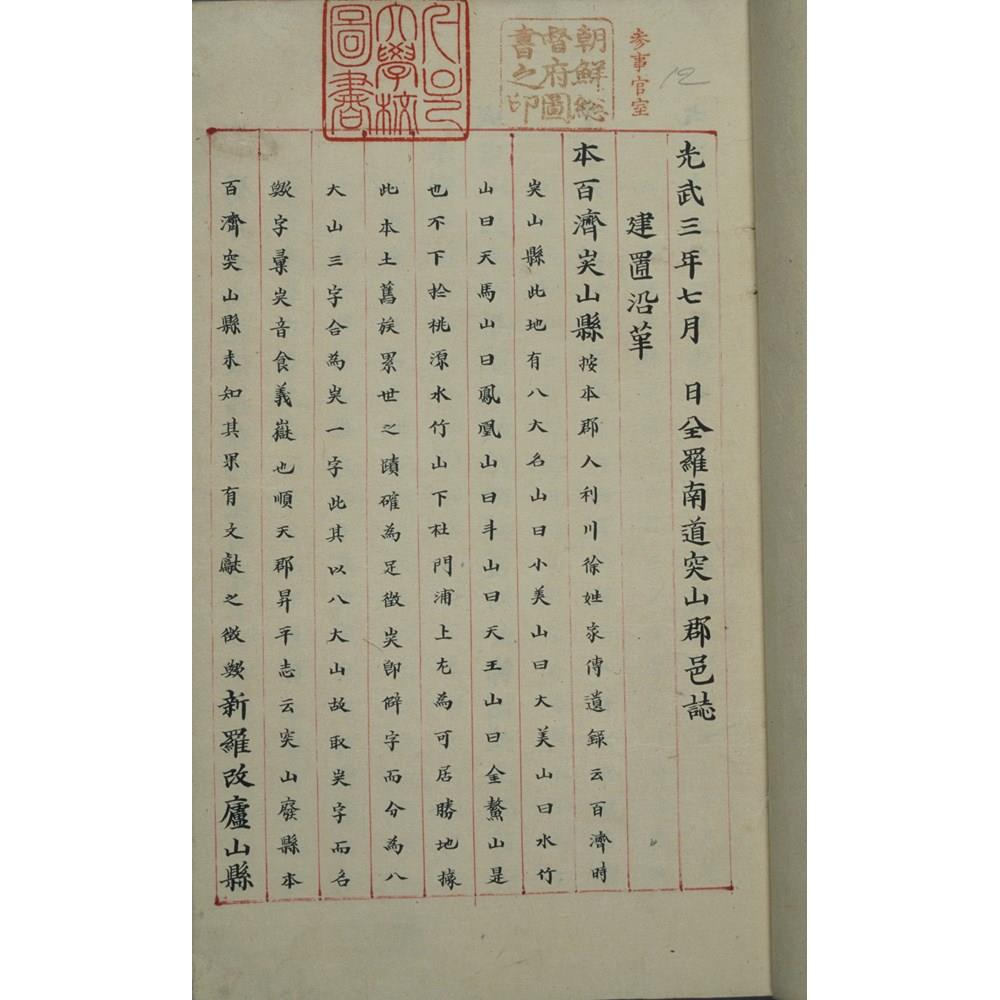 参事官室
12
朝鮮總
督府圖
書之印
서울
大學校
圖書
光武三年七月　日全羅南道突山郡邑誌
建置沿革
本百濟山縣按本郡人利川徐姓家傳遺錄云百濟時
山縣此地有八大名山曰小美山曰大美山曰水竹
山曰天馬山曰鳳凰山曰斗山曰天王山曰金鰲山是
也不下於桃源水竹山下杜門浦上尤為可居勝地據
此本土舊族累世之蹟確為足徵即僻字而分為八
大山三字合為一字此其以八大山故取字而名
歟字彙音食義嶽也順天郡昇平志云突山廢縣本
百濟突山縣未知其果有文獻之徵歟新羅改廬山縣